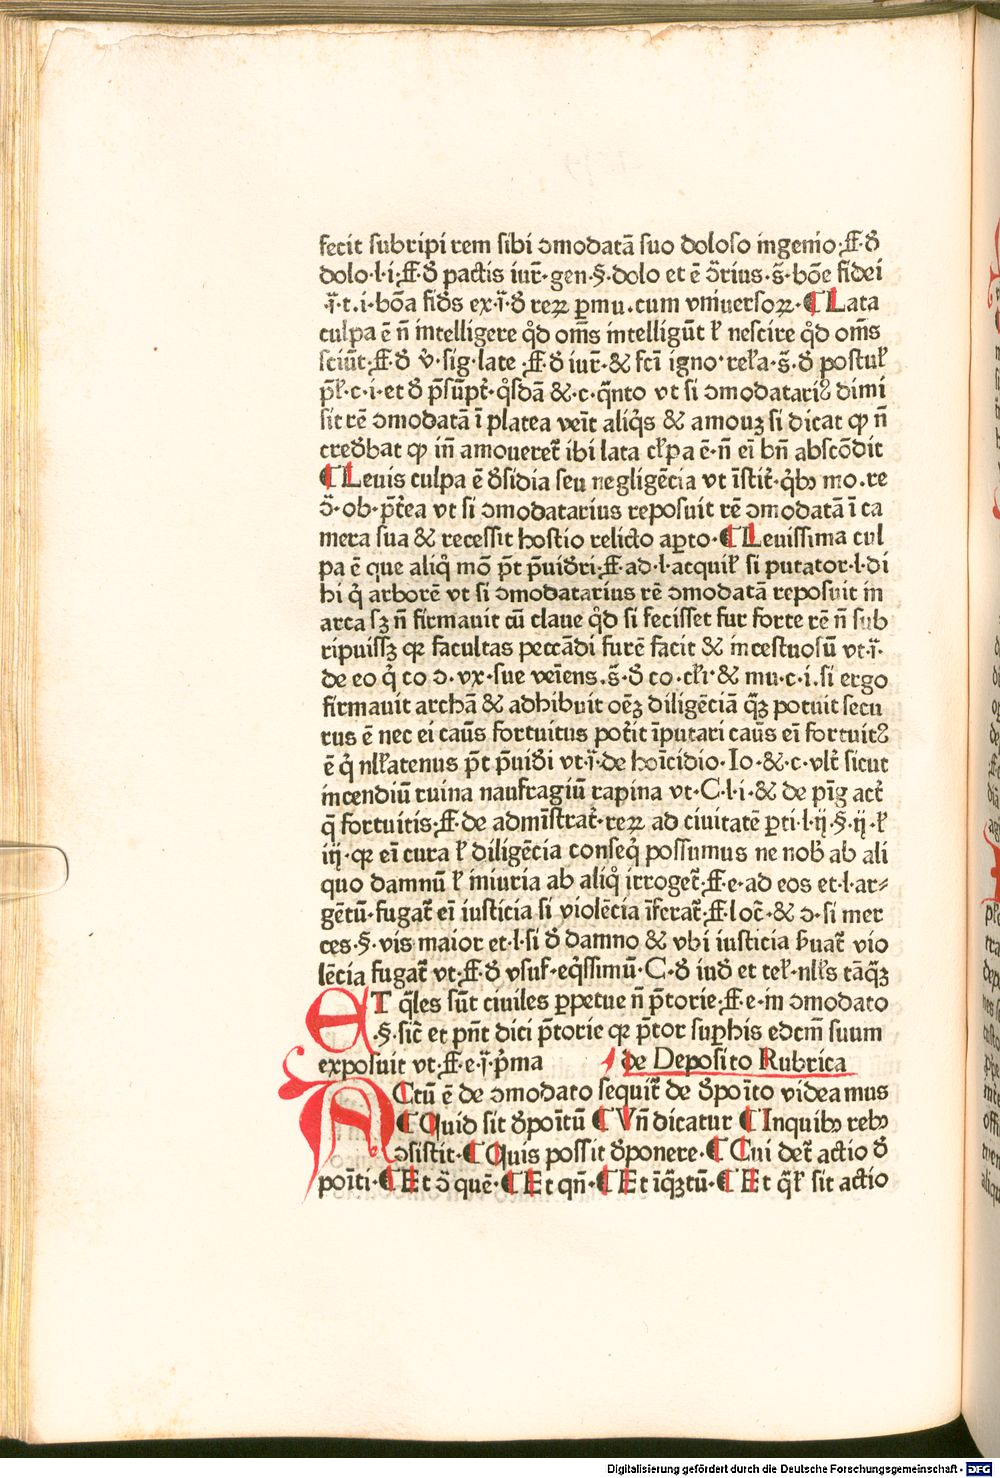 fecit subripi rem sibi ɔmodatā suo doloso ingenio·ff·ꝺ̄
dolo·l·i·ff·ꝺ̄ pactis iur̄·gen·§·dolo et ē ɔ̄rius·s̄·bōe fidei
·i̋·t·i·bōa fid̄s ex·i̋·ꝺ̄ reꝝ ꝑmu·cum vniuersoꝝ·¶ Lata
culpa ē n̄ intelligere qd̄ om̄s intelligūt ł nescire qd̄ om̄s
sciūt·ff·ꝺ̄ v̄·sig·late·ff·ꝺ̄ iur̄·& fc̄i igno·reła·s̄·ꝺ̄ postuł
p̄ł·c·i·et ꝺ̄ p̄sūpt̄·q̊sdā &·c·q̄nto vt si ɔmodatariꝰ dimi
sit rē ɔmodatā ī platea veīt aliq̊s & amouꝫ si dicat ꝙ n̄
cred̄bat ꝙ in̄ amoueret̄ ibi lata cłpa ē·n̄ eī bn̄ abscōdit
¶ Leuis culpa ē ꝺ̄sidia seu negligēcia vt īstit̄·qꝫ mo·re
ɔ̄·ob·p̄tea vt si ɔmodatarius reposuit rē ɔmodatā ī ca
mera sua & recessit hostio relicto aꝑto·¶ Leuissima cul
pa ē que aliq̊ mō p̄t p̄uid̄ri·ff·ad·l·acquił si putator·l·di
hi q̊ arborē vt si ɔmodatarius rē ɔmodatā reposuit in
arca sꝫ n̄ firmauit cū claue qd̄ si fecisset fur forte rē n̄ sub
ripuissꝫ qꝛ facultas peccādi furē facit & incestuosū vt·i̋·
de eo q̊ co ɔ·vx·sue veīens·s̄·ꝺ̄ co·cłr·& mu·c·i·si ergo
firmauit archā & adhibuit oēꝫ diligēciā q̄ꝫ potuit secu
rus ē nec ei caūs fortuitus pot̄it īputari caūs eī fortuitꝰ
ē q̊ nłlatenus p̄t p̄uid̄i vt·i̋·de hoīcidio·Io·&·c·vlt̄ sicut
incendiū ruina naufragiū rapina vt·C·l·i·& de pīg act̄
q̄ fortuitis·ff·de admīstrat̄·reꝝ ad ciuitatē ꝑti·l·ij·§·ij·ł
iij·qꝛ eī cura ł diligēcia conseq̊ possumus ne nob̄ ab ali
quo damnū ł iniuria ab aliq̊ irroget̄·ff·e·ad eos et·l·ar⸗
gētū·fugat̄ eī iusticia si violēcia īferat̄·ff·loc̄·& ɔ·si mer
ces·§·vis maior et·l·si ꝺ̄ damno & vbi iusticia ẜuat̄ vio
lēcia fugat̄ vt·ff·ꝺ̄ vsuf·eq̊ssimū·C·ꝺ̄ iud̄ et teł·nłls tāq̄ꝫ
ET q̄les sūt ciuiles ꝑpetue n̄ p̄torie·ff·e·in ɔmodato
·§·sic̄ et pn̄t dici p̄torie qꝛ p̄tor suꝑhis edcm̄ suum
exposuit vt·ff·e·i̋·p̄ma de Deposito Rubrica
ACtū ē de ɔmodato sequit̄ de ꝺ̄poīto videamus
¶ Quid sit ꝺ̄poītū ¶ Vn̄ dicatur ¶ Inquibꝫ rebꝫ
ɔsistit·¶ Quis possit ꝺ̄ponere·¶ Cui det̄ actio ꝺ̄
poīti·¶ Et ɔ̄ quē·¶ Et qn̄·¶ Et īq̄ꝫtū·¶ Et q̄ł sit actio
Digitalisierung gefördert durch die Deutsche Forschungsgemeinschaft - DFG